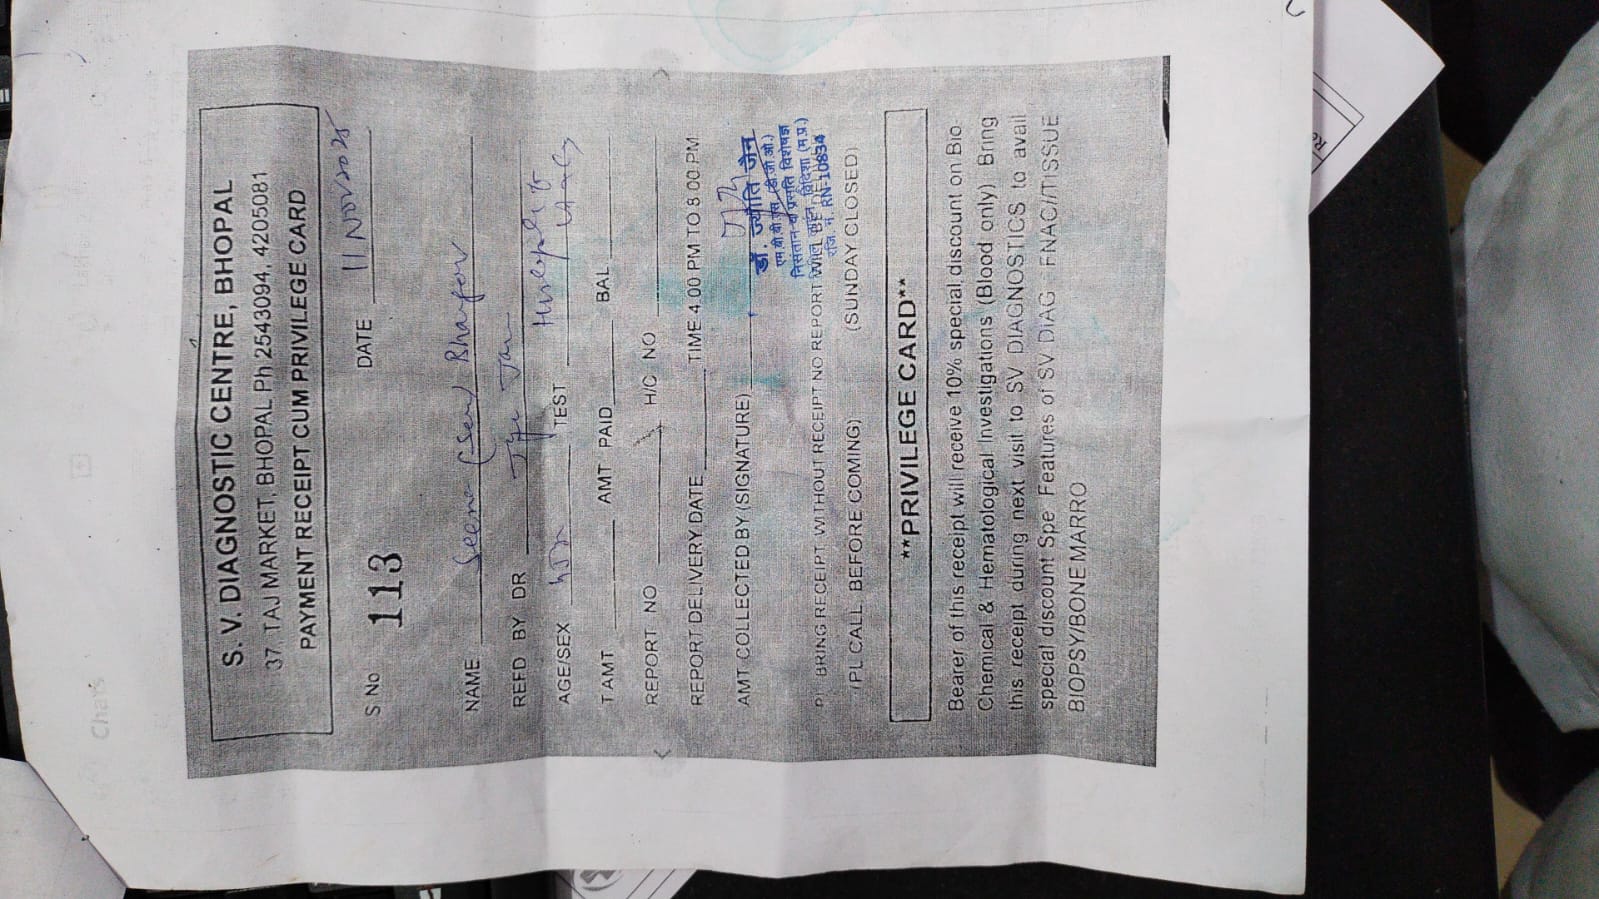 S. V. DIAGNOSTIC CENTRE, BHOPAL
37, TAJ MARKET, BHOPAL Ph 2543094, 4205081
PAYMENT RECEIPT CUM PRIVILEGE CARD
S No 113 DATE 11 Nov 2025
NAME Seema
REFD BY DR
AGE/SEX TEST
T AMT AMT PAID BAL
REPORT NO H/C NO
REPORT DELIVERY DATE TIME 4.00 PM TO 8 00 PM
AMT COLLECTED BY (SIGNATURE)
डॉ. ज्योति जैन
एम.बी.बी.एस. (डी.जी.ओ.)
निसंतान व प्रसूति विशेषज्ञ
विदिशा (म.प्र.)
रजि. नं. RN-10834
BRING RECEIPT WITHOUT RECEIPT NO REPORT WILL BE
(PL CALL BEFORE COMING) (SUNDAY CLOSED)
**PRIVILEGE CARD**
Bearer of this receipt will receive 10% special discount on Bio-
Chemical & Hematological Investigations (Blood only) Bring
this receipt during next visit to SV DIAGNOSTICS to avail
special discount Spe Features of SV DIAG FNAC/TISSUE
BIOPSY/BONE MARRO
Chats